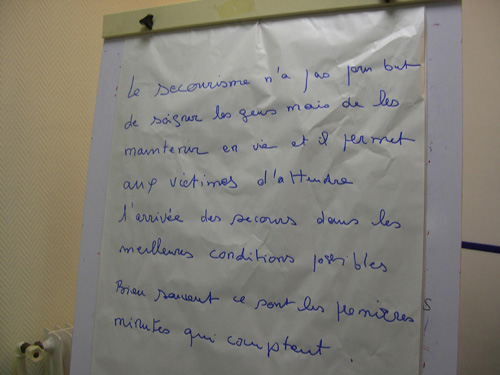 Le secourisme n'a pas pour but
de soigner les gens mais de les
maintenir en vie et il permet
aux victimes d'attendre
l'arrivée des secours dans les
meilleures conditions possibles
Bien souvent ce sont les premières
minutes qui comptent.